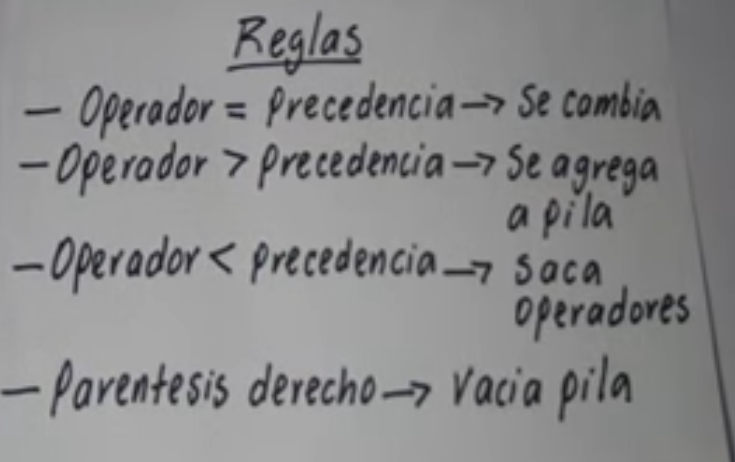 Reglas
- Operador = Precedencia → Se cambia
- Operador > Precedencia → Se agrega
a pila
- Operador < precedencia → saca
operadores
- Parentesis derecho → Vacia pila